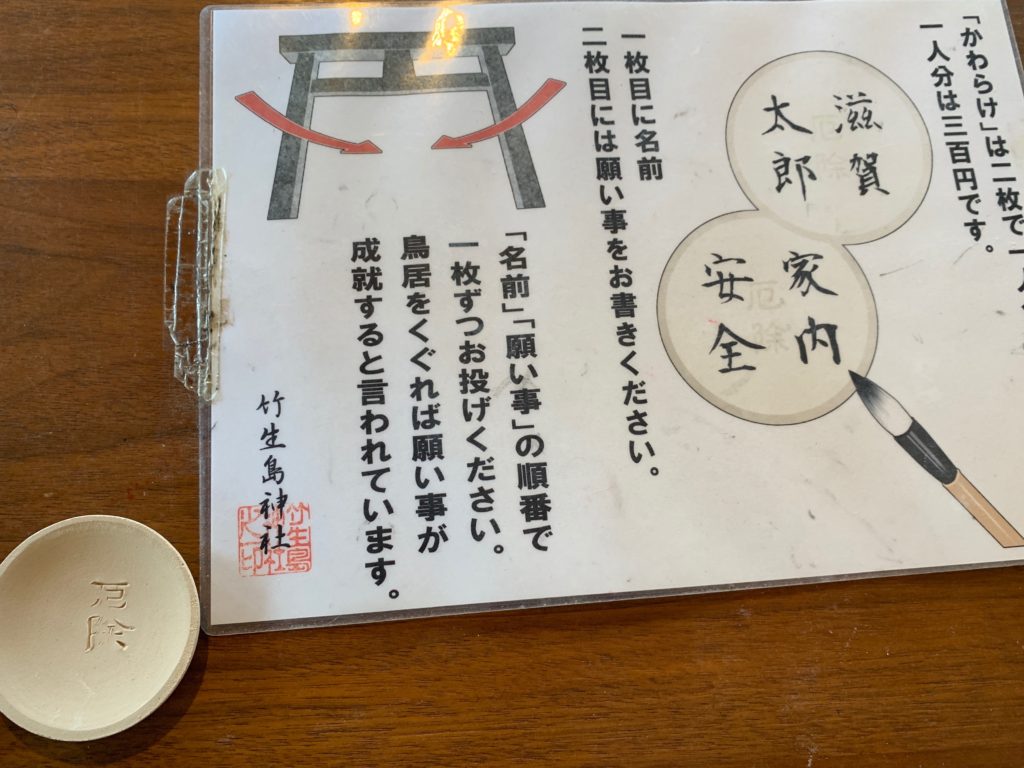 「かわらけ」は二枚で一
一人分は三百円です。
滋賀
太郎
家内
安全
一枚目に名前
二枚目には願い事をお書きください。
「名前」「願い事」の順番で
一枚ずつお投げください。
鳥居をくぐれば願い事が
成就すると言われています。
竹生島神社
厄除